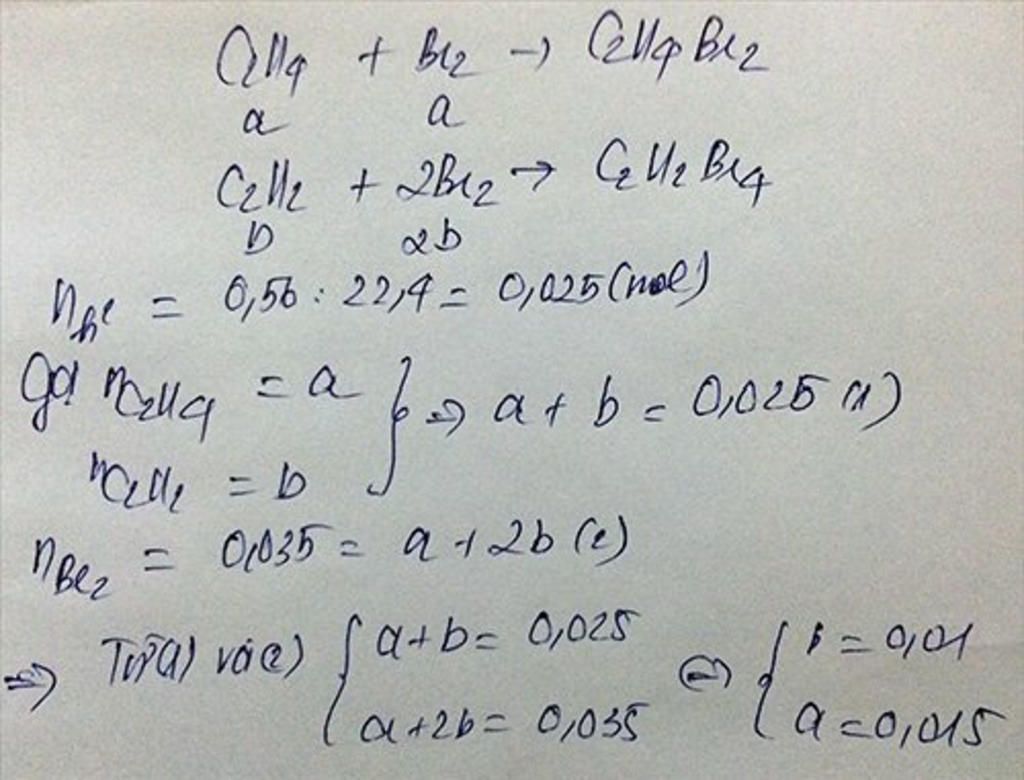 C2H4 + Br2 → C2H4Br2
a a
C2H2 + 2Br2 → C2H2Br4
b 2b
nhh = 0,56 : 22,4 = 0,025 (mol)
Gọi nC2H4 = a } ⇒ a + b = 0,025 (1)
nC2H2 = b
nBr2 = 0,035 = a + 2b (2)
⇒ Từ (1) và (2) { a + b = 0,025 ⇔ { b = 0,01
a + 2b = 0,035 a = 0,015